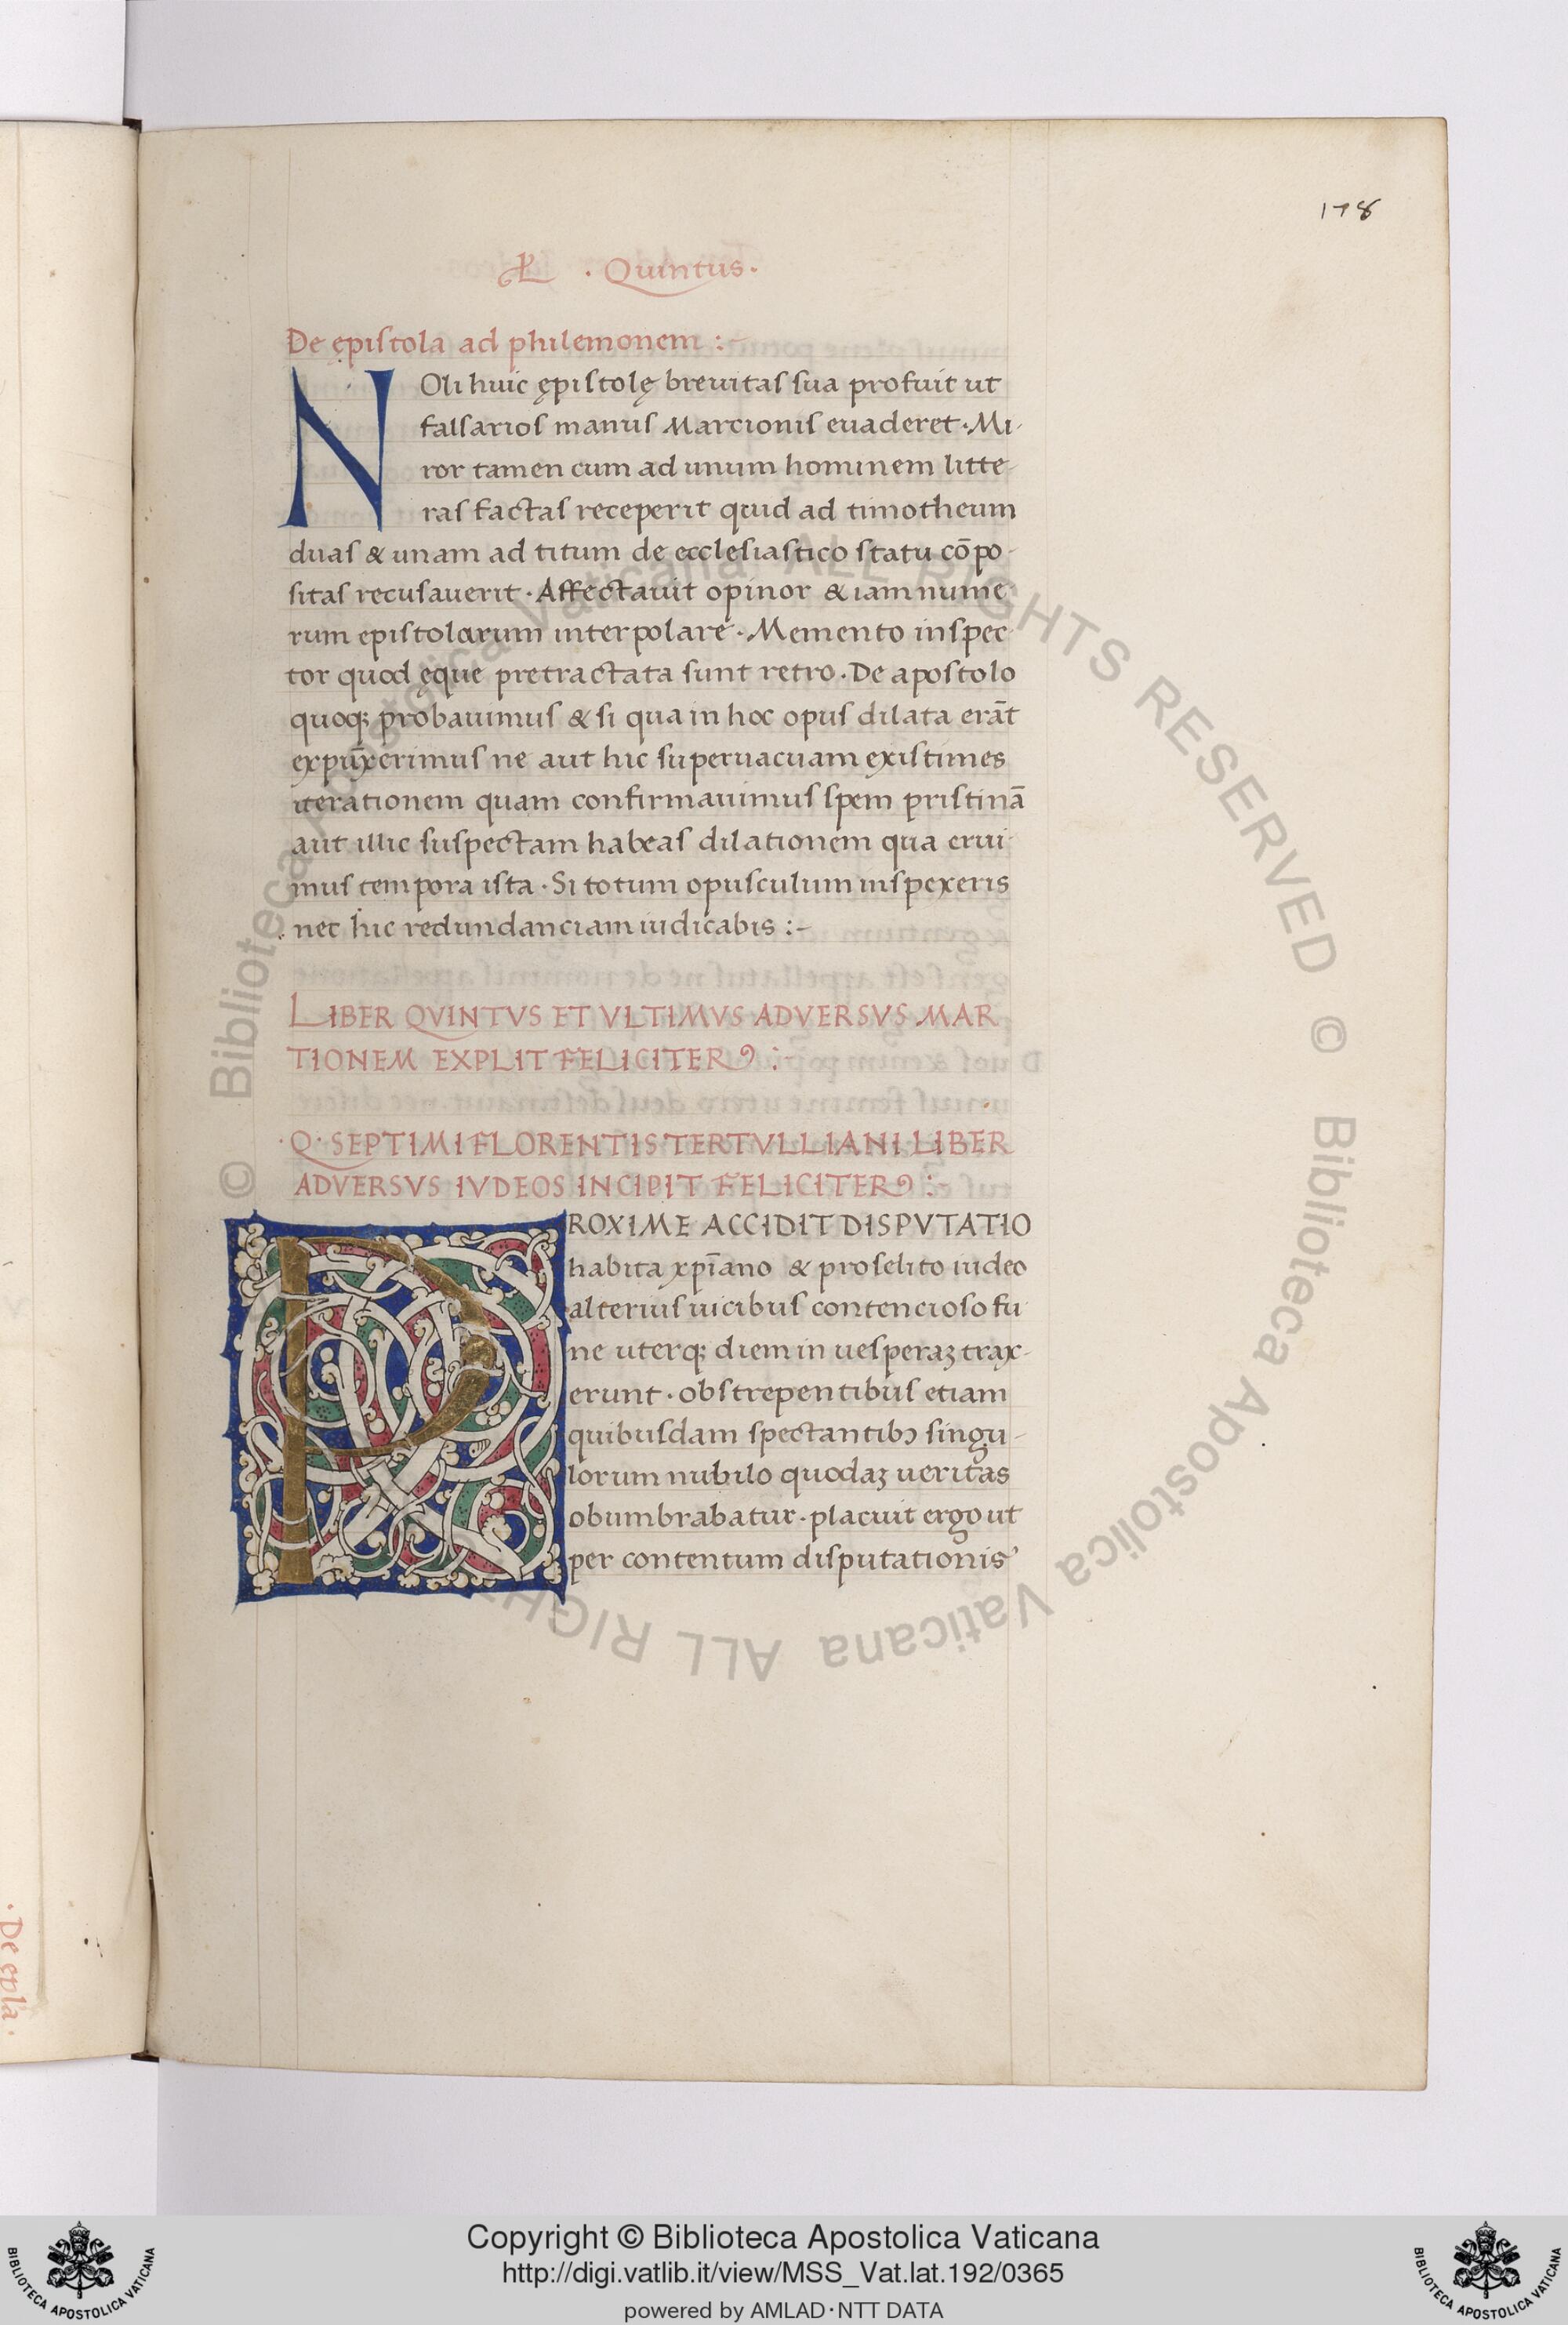 178
L · Quintus ·
De ępistola ad philemonem :-
NOli huic ępistolę breuitas sua profuit ut
falsarios manus Marcionis euaderet · Mi-
ror tamen cum ad unum hominem litte-
ras factas receperit quid ad timotheum
duas & unam ad titum de ecclesiastico statu cōpo-
sitas recusauerit · Affectauit opinor & iam nume-
rum epistolarum interpolare · Memento inspec-
tor quod ęque pretractata sunt retro · De apostolo
quoq; probauimus & si qua in hoc opus dilata erāt
expūxerimus ne aut hic superuacuam existimes
iterationem quam confirmauimus spem pristinā
aut illic suspectam habeas dilationem qua erui-
mus tempora ista · Si totum opusculum inspexeris
nec hic redundanciam iudicabis :-
LIBER QVINTVS ET VLTIMVS ADVERSVS MAR
TIONEM EXPLIT FELICITER :-
· Q · SEPTIMI FLORENTIS TERTVLLIANI LIBER
ADVERSVS IVDEOS INCIPIT FELICITER :-
PROXIME ACCIDIT DISPVTATIO
habita xp̄iano & proselito iudeo
alterius uicibus contencioso fu
ne uterq; diem in uesperaꝫ trax-
erunt · obstrepentibus etiam
quibusdam spectantibꝰ singu-
lorum nubilo quodaꝫ ueritas
obumbrabatur · placuit ergo ut
per contentum disputationis
· De epl'a ·
© Biblioteca Apostolica Vaticana ALL RIGHTS RESERVED © Biblioteca Apostolica Vaticana ALL RIGHTS
Copyright © Biblioteca Apostolica Vaticana
http://digi.vatlib.it/view/MSS_Vat.lat.192/0365
powered by AMLAD·NTT DATA
BIBLIOTECA APOSTOLICA VATICANA
BIBLIOTECA APOSTOLICA VATICANA